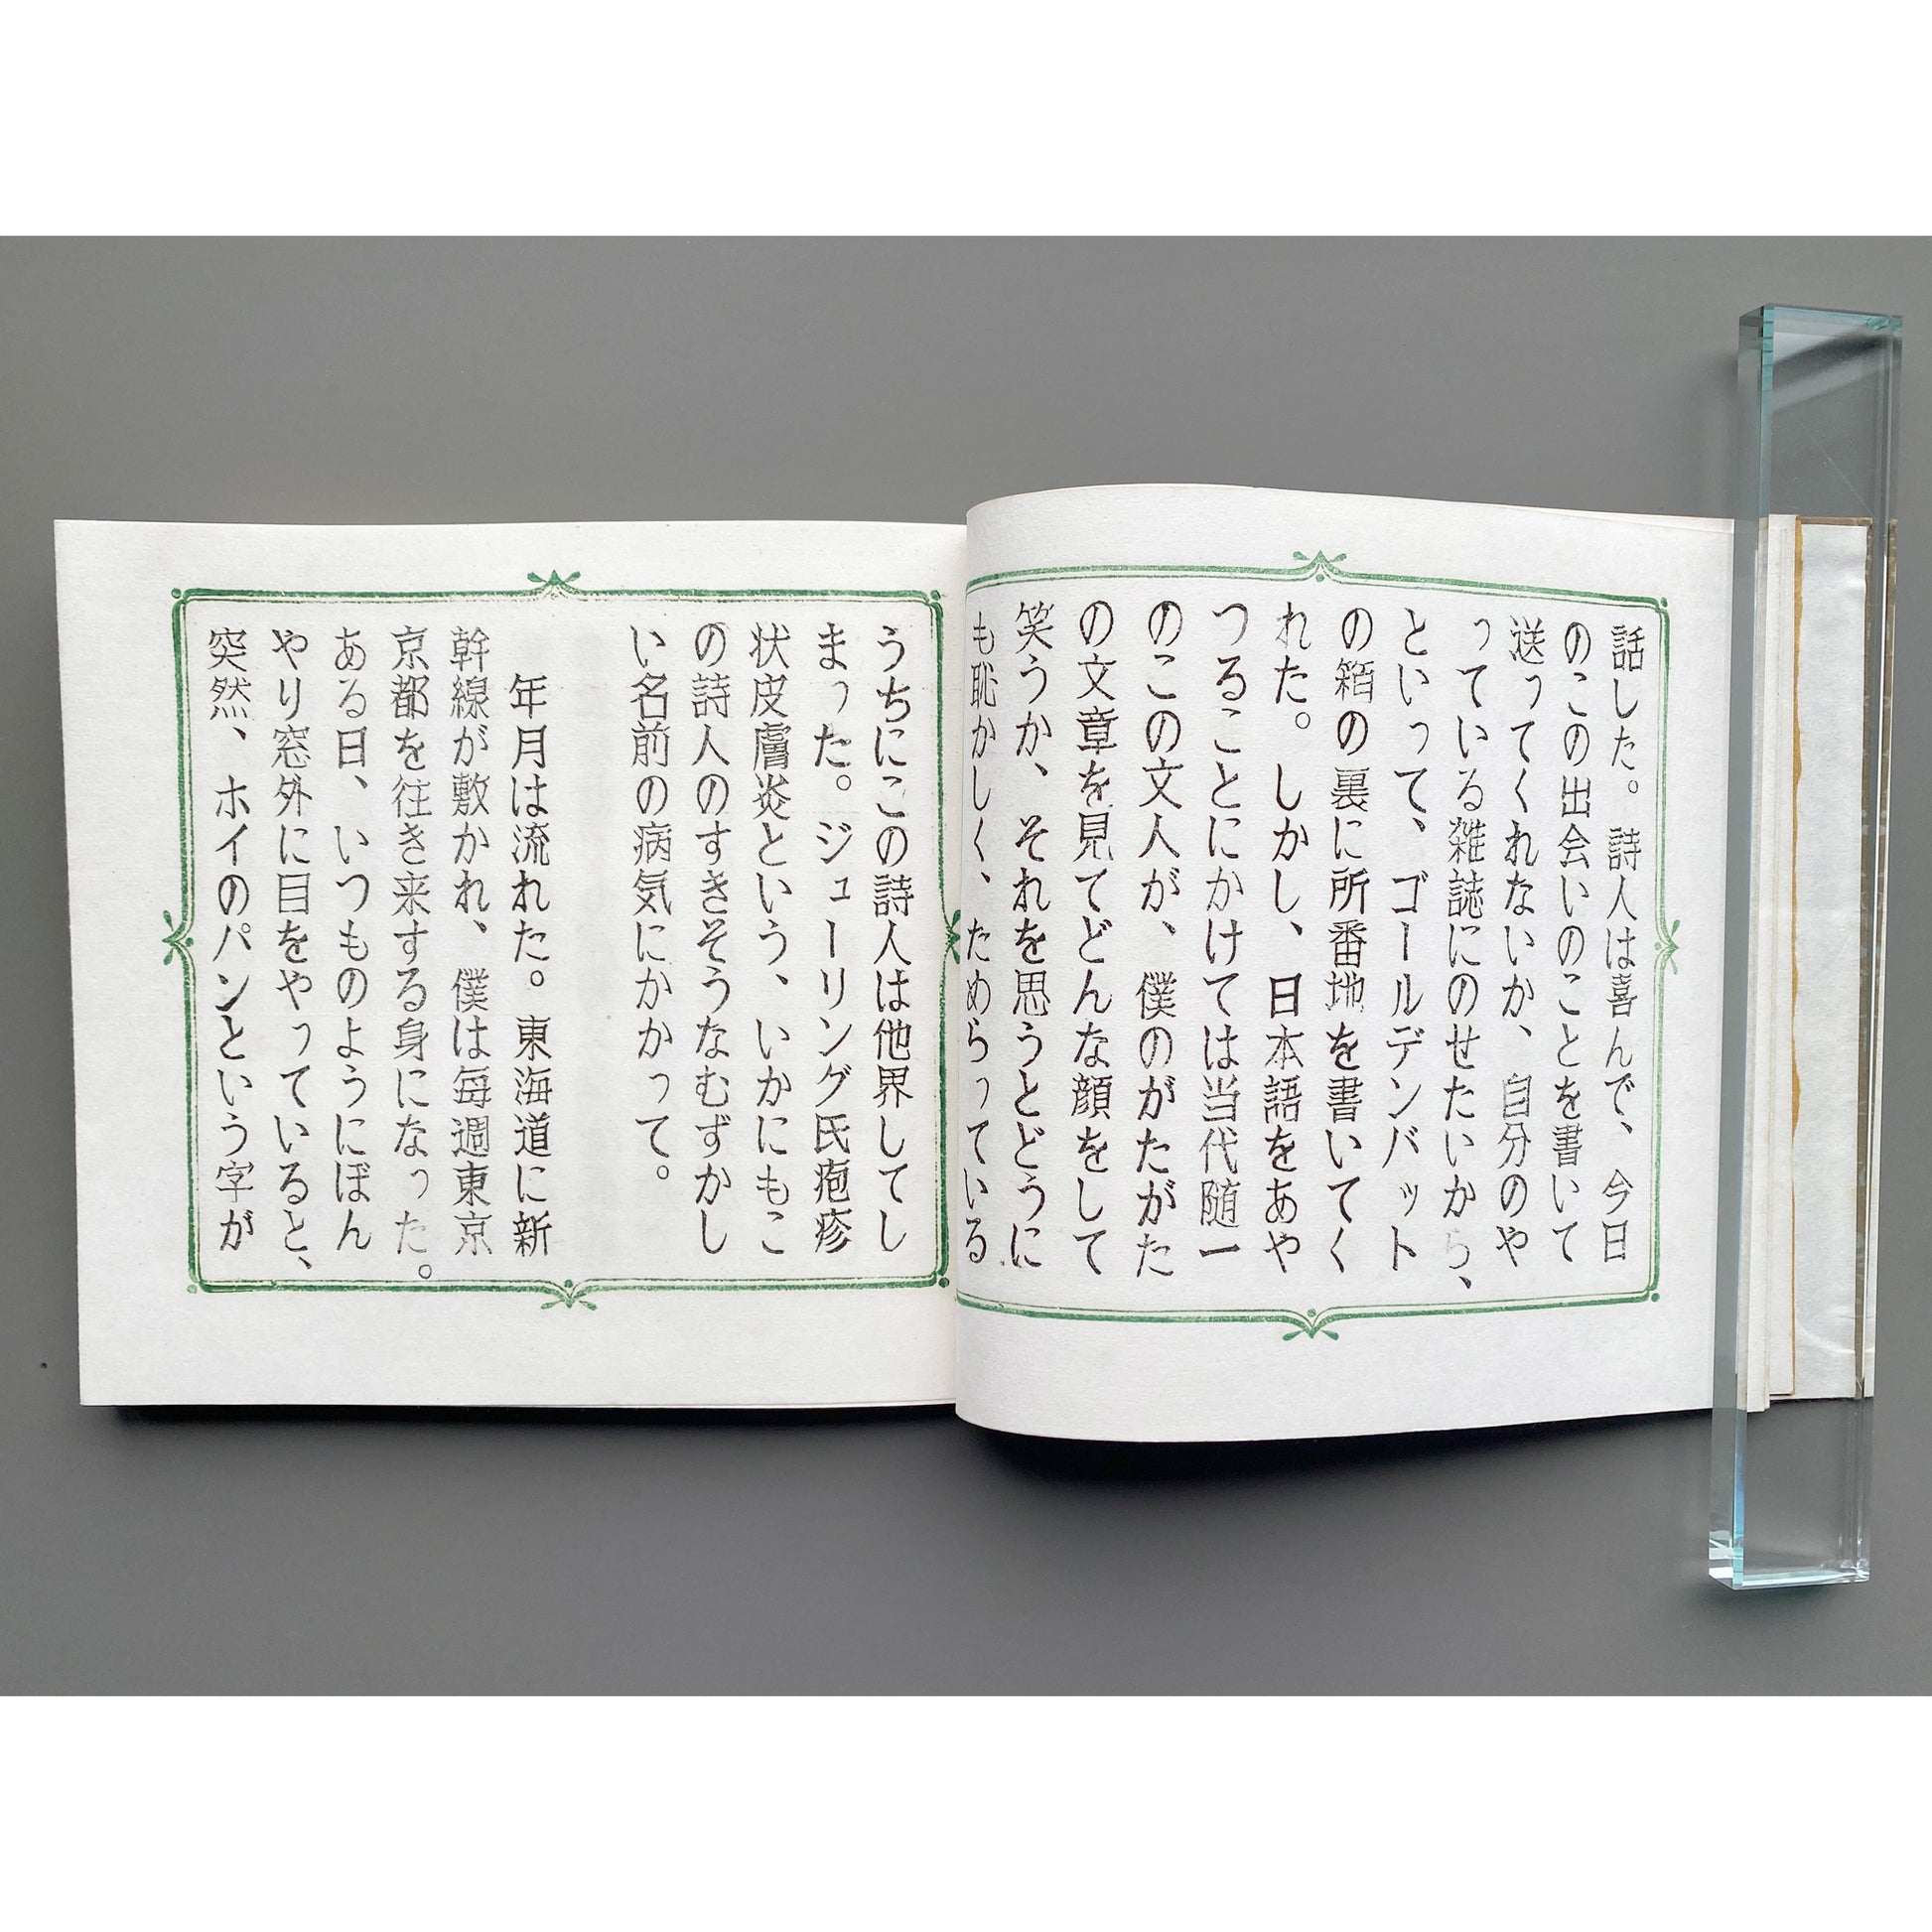 話した。詩人は喜んで、今日
のこの出会いのことを書いて
送ってくれないか、自分のや
っている雑誌にのせたいから、
といって、ゴールデンバット
の箱の裏に所番地を書いてく
れた。しかし、日本語をあや
つることにかけては当代随一
のこの文人が、僕のがたがた
の文章を見てどんな顔をして
笑うか、それを思うとどうに
も恥かしく、ためらっている
うちにこの詩人は他界してし
まった。ジューリング氏疱疹
状皮膚炎という、いかにもこ
の詩人のすきそうなむずかし
い名前の病気にかかって。
年月は流れた。東海道に新
幹線が敷かれ、僕は毎週東京
京都を往き来する身になった。
ある日、いつものようにぼん
やり窓外に目をやっていると、
突然、ホイのパンという字が